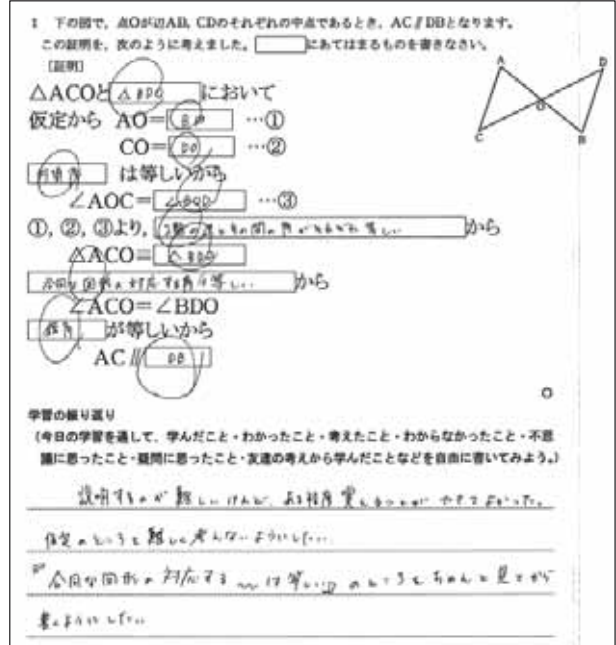 1 下の図で、点Oが辺AB, CDのそれぞれの中点であるとき、AC∥DBとなります。
この証明を、次のように考えました。にあてはまるものを書きなさい。
[証明]
△ACOと△BDOにおいて
仮定から AO=BO …①
CO=DO …②
対頂角は等しいから
∠AOC=∠BOD …③
①, ②, ③より, 2組の辺とその間の角がそれぞれ等しいから
△ACO≡△BDO
合同な図形の対応する角は等しいから
∠ACO=∠BDO
錯角が等しいから
AC∥DB
A
D
O
C
B
学習の振り返り
(今日の学習を通して、学んだこと・わかったこと・考えたこと・わからなかったこと・不思
議に思ったこと・疑問に思ったこと・友達の考えから学んだことなどを自由に書いてみよう。)
説明するのが難しいけんど、ある程度
仮定のところを難しく考えないようにしたい。
合同な図形の対応する 〜 は等しい のところをちゃんと見てから
書くようにしたい